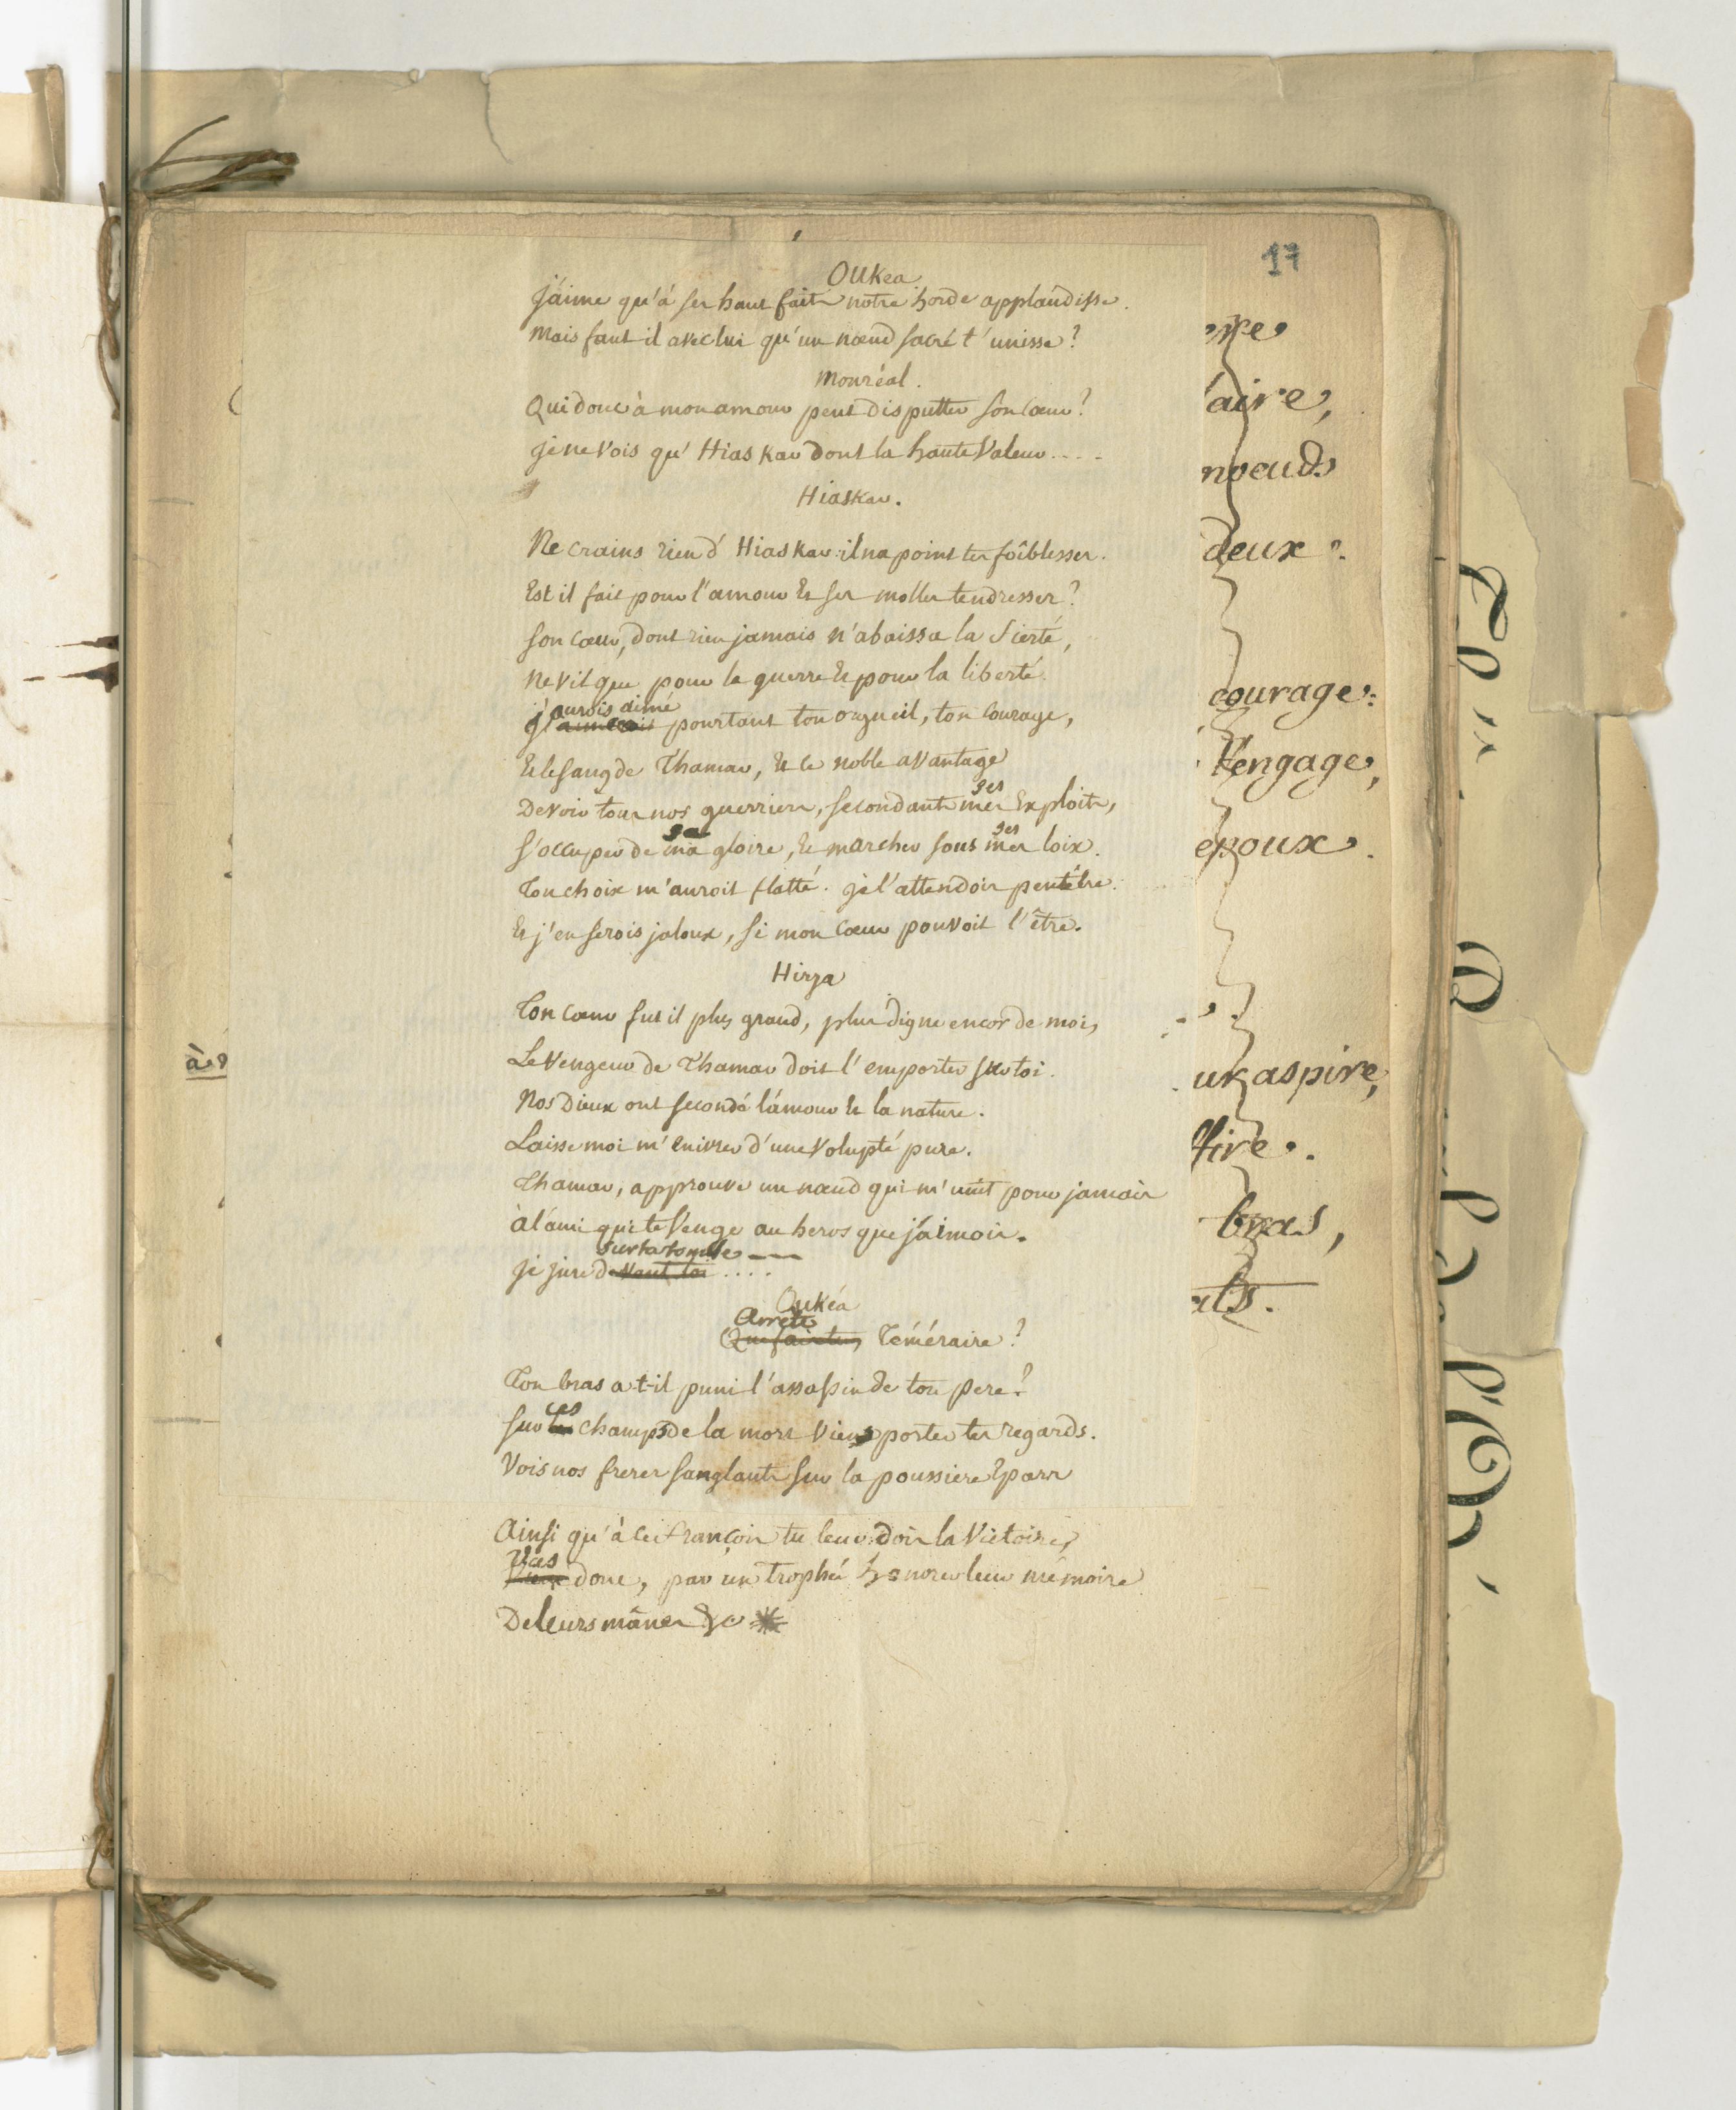 17
Oukea
j'aime qu'à ses haut faits notre horde applaudisse.
Mais faut il avec lui qu'un nœud sacré t'unisse?
Monréal.
Qui donc à mon amour peut disputter son cœur?
je ne vois qu'Hiaskar dont la haute valeur....
Hiaskar.
Ne crains rien d'Hiaskar: il na point tes foiblesses.
Est il fait pour l'amour et ses molles tendresses?
Son cœur, dont rien jamais n'abaissa la fierté,
Ne vit que pour la guerre et pour la liberté.
aurois aimé
j'aimerois pourtant ton orgueil, ton courage,
Et le sang de Thamar, et le noble avantage
ses
De voir tous nos guerriers, secondant mes Exploits,
sa ses
S'occuper de ma gloire, et marcher sous mes loix.
Ton choix m'auroit flatté. je l'attendois peutêtre.
Et j'en serois jaloux, si mon cœur pouvoit l'être.
Hirza
Ton cœur fut il plus grand, plus digne encor de moi,
Le vengeur de Thamar doit l'emporter sur toi.
Nos Dieux ont secondé l'amour et la nature.
Laisse moi m'enivrer d'une volupté pure.
Thamar, approuve un nœud qui m'unit pour jamais
à l'ami qui te venge au heros que j'aimois.
sur ta tombe
je jure devant toi ....
Oukéa
Arrete
Que fais tu, Téméraire?
Ton bras a-t-il puni l'assassin de ton pere?
ces
Sur les champs de la mort viens porter tes regards.
Vois nos freres sanglants sur la poussiere épars
Ainsi qu'à ces françois tu leur dois la victoire,
Vas
donc, par un trophée honorer leur mémoire
De leurs mânes &c
aire,
nœuds
deux.
courage.
t'engage,
époux.
ur aspire,
tire.
bras,
ats.